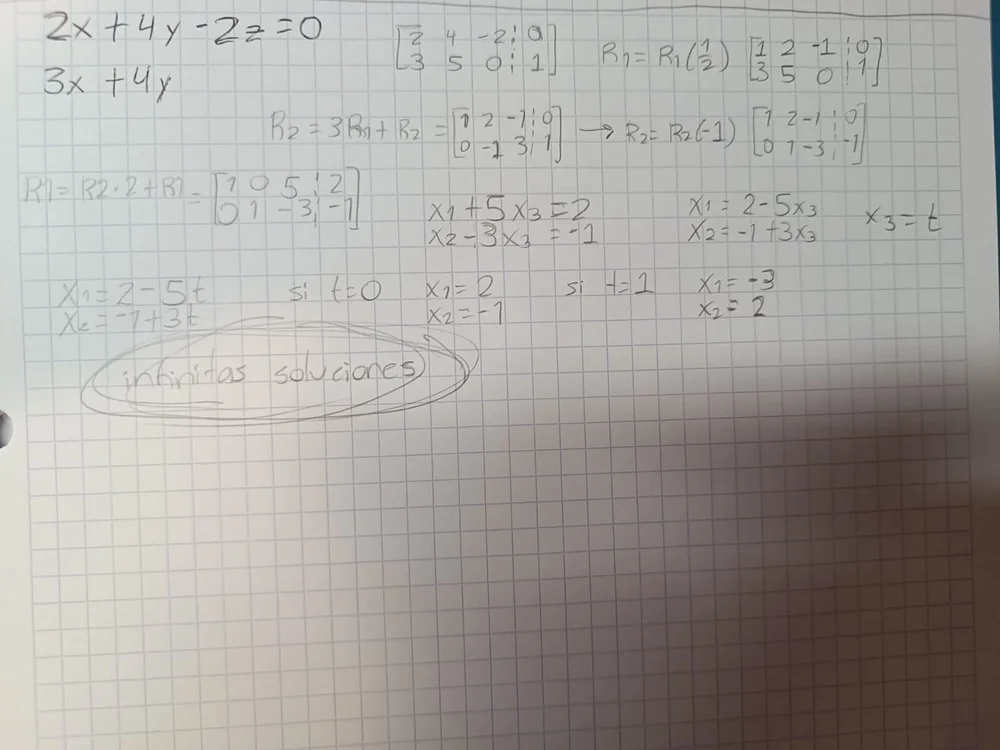 2x + 4y - 2z = 0
3x + 4y
[2 4 -2 ⋮ 0
3 5 0 ⋮ 1]
R1 = R1(1/2) [1 2 -1 ⋮ 0
3 5 0 ⋮ 1]
R2 = 3R1 + R2 = [1 2 -1 ⋮ 0
0 -1 3 ⋮ 1]
→ R2 = R2(-1) [1 2 -1 ⋮ 0
0 1 -3 ⋮ -1]
R1 = R2·2 + R1 = [1 0 5 ⋮ 2
0 1 -3 ⋮ -1]
x1 + 5x3 = 2
x2 - 3x3 = -1
x1 = 2 - 5x3
x2 = -1 + 3x3
x3 = t
x1 = 2 - 5t
x2 = -1 + 3t
si t=0
x1 = 2
x2 = -1
si t=1
x1 = -3
x2 = 2
infinitas soluciones